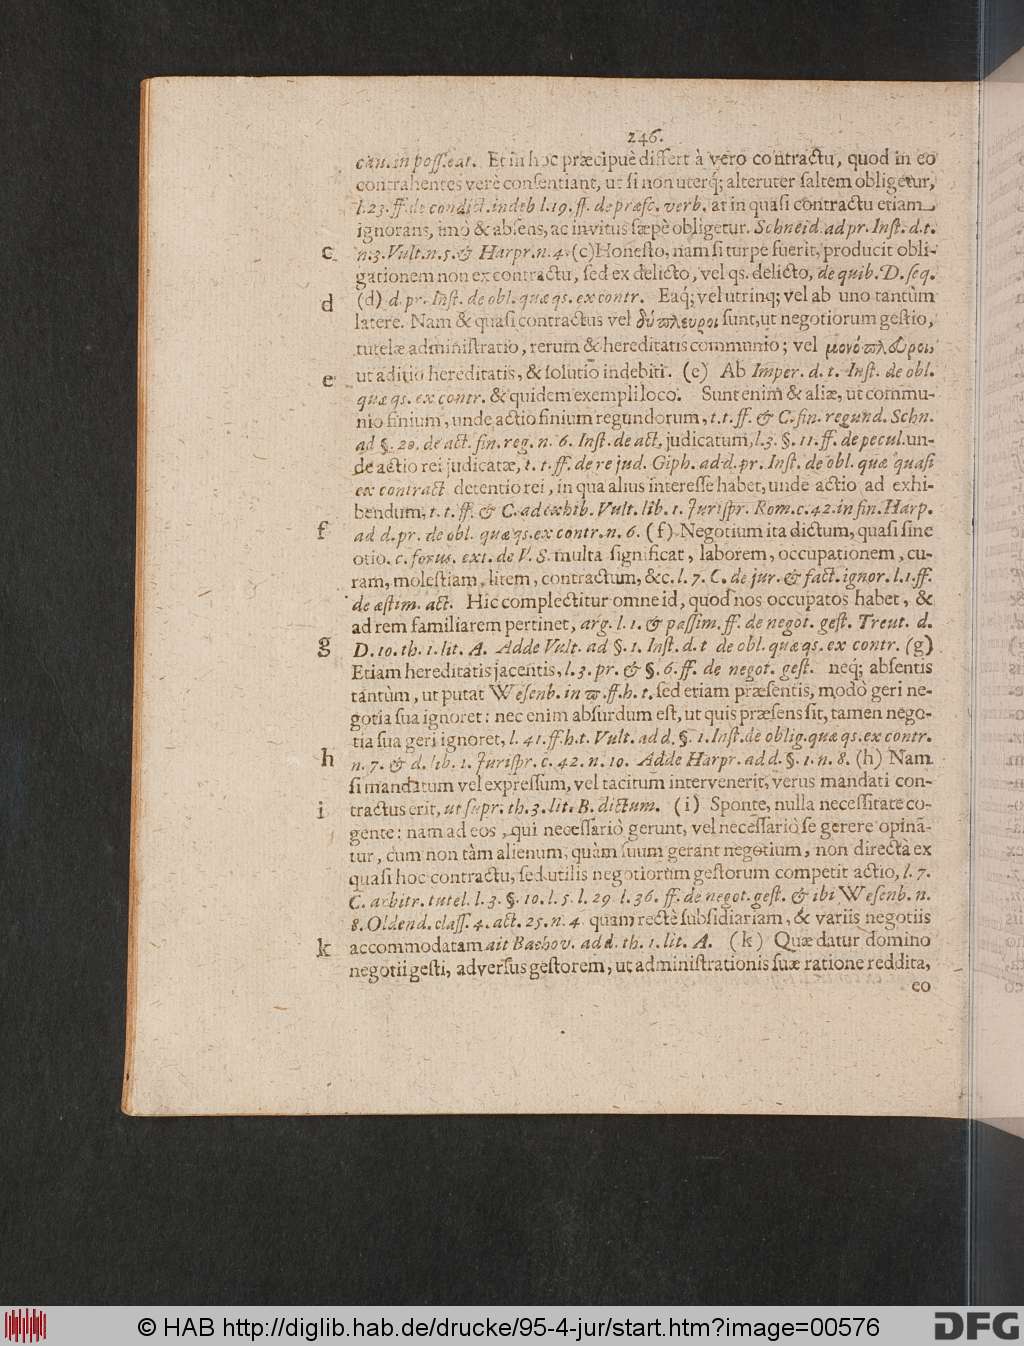 246.
cau. in poss. eat. Et in hoc præcipuè differt à vero contractu, quod in eo
contrahentes verè consentiant, ut si non uterq́; alteruter saltem obligetur,
l. 23. ff. de condict. indeb l. 19. ff. de præsc. verb. at in quasi contractu etiam
ignorans, imò & absens, ac invitus sæpè obligetur. Schneid. ad pr. Inst. d. t.
c n. 3. Vult. n. 5. & Harpr. n. 4. (c) Honesto, nam si turpe fuerit, producit obli-
gationem non ex contractu, sed ex delicto, vel qs. delicto, de quib. D. seq.
d (d) d. pr. Inst. de obl. quæ qs. ex contr. Eaq́; vel utrinq; vel ab uno tantùm
latere. Nam & quasi contractus vel δύπλευροι sunt, ut negotiorum gestio,
tutelæ administratio, rerum & hereditatis communio; vel μονόπλευροι,
e ut aditio hereditatis, & solutio indebiti. (e) Ab Imper. d. t. Inst. de obl.
quæ qs. ex contr. & quidem exempli loco. Sunt enim & aliæ, ut commu-
nio finium, unde actio finium regundorum, t. t. ff. & C. fin. regund. Schn.
ad §. 20. de act. fin. reg. n. 6. Inst. de act, judicatum, l. 3. §. 11. ff. de pecul. un-
de actio rei judicatæ, t. t. ff. de re jud. Giph. ad d. pr. Inst. de obl. quæ quasi
ex contract detentio rei, in qua alius interesse habet, unde actio ad exhi-
bendum, t. t. ff. & C. ad exhib. Vult. lib. 1. Jurispr. Rom. c. 42. in fin. Harp.
f ad d. pr. de obl. quæ qs. ex contr. n. 6. (f) Negotium ita dictum, quasi sine
otio. c. forus. ext. de V. S. multa significat, laborem, occupationem, cu-
ram, molestiam, litem, contractum, &c. l. 7. C. de jur. & fact. ignor. l. 1. ff.
de æstim. act. Hic complectitur omne id, quod nos occupatos habet, &
ad rem familiarem pertinet, arg. l. 1. & passim. ff. de negot. gest. Treut. d.
g D. 10. th. 1. lit. A. Adde Vult. ad §. 1. Inst. d. t de obl. quæ qs. ex contr. (g)
Etiam hereditatis jacentis, l. 3. pr. & §. 6. ff. de negot. gest. neq; absentis
tantùm, ut putat Wesenb. in ϖ. ff. h. t. sed etiam præsentis, modò geri ne-
gotia sua ignoret: nec enim absurdum est, ut quis præsens sit, tamen nego-
tia sua geri ignoret, l. 41. ff. h. t. Vult. ad d. §. 1. Inst. de oblig. quæ qs. ex contr.
h n. 7. & d. lib. 1. Jurispr. c. 42. n. 10. Adde Harpr. ad d. §. 1. n. 8. (h) Nam
si mandatum vel expressum, vel tacitum intervenerit, verus mandati con-
i tractus erit, ut supr. th. 3. lit. B. dictum. (i) Sponte, nulla necessitate co-
gente: nam ad eos, qui necessariò gerunt, vel necessariò se gerere opinã-
tur, cum non tàm alienum, quàm suum gerant negotium, non directa ex
quasi hoc contractu, sed utilis negotiorum gestorum competit actio, l. 7.
C. arbitr. tutel. l. 3. §. 10. l. 5. l. 29. l. 36. ff. de negot. gest. & ibi Wesenb. n.
8. Oldend. class. 4. act. 25. n. 4. quam rectè subsidiariam, & variis negotiis
k accommodatam ait Bachov. ad d. th. 1. lit. A. (k) Quæ datur domino
negotii gesti, adversus gestorem, ut administrationis suæ ratione reddita,
eo
© HAB http://diglib.hab.de/drucke/95-4-jur/start.htm?image=00576
DFG